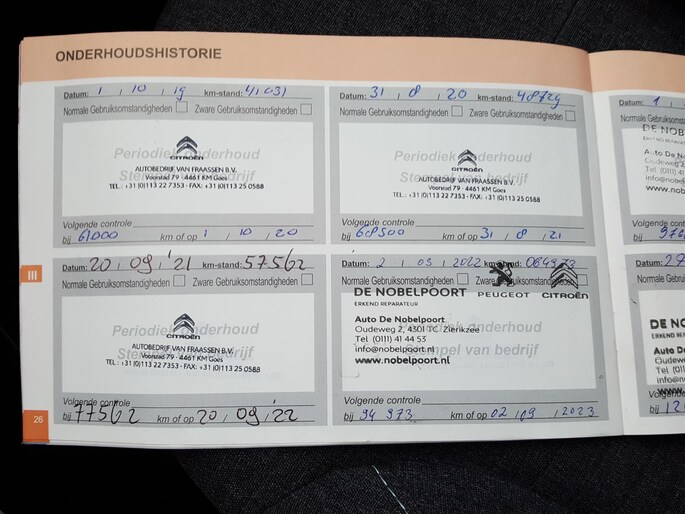 ONDERHOUDSHISTORIE
Datum: 1 / 10 / 19 km-stand: 41031
Normale Gebruiksomstandigheden Zware Gebruiksomstandigheden
Periodiek onderhoud
CITROËN
AUTOBEDRIJF VAN FRAASSEN B.V.
Voorstad 79 - 4461 KM Goes
TEL.: +31 (0)113 22 7353 - FAX: +31 (0)113 25 0588
Volgende controle
bij 61000 km of op 1 / 10 / 20
Datum: 31 / 8 / 20 km-stand: 48729
Normale Gebruiksomstandigheden Zware Gebruiksomstandigheden
Periodiek onderhoud
CITROËN
AUTOBEDRIJF VAN FRAASSEN B.V.
Voorstad 79 - 4461 KM Goes
TEL.: +31 (0)113 22 7353 - FAX: +31 (0)113 25 0588
Volgende controle
bij 68500 km of op 31 / 8 / 21
III
Datum: 20 / 09 / '21 km-stand: 57562
Normale Gebruiksomstandigheden Zware Gebruiksomstandigheden
Periodiek onderhoud
CITROËN
AUTOBEDRIJF VAN FRAASSEN B.V.
Voorstad 79 - 4461 KM Goes
TEL.: +31 (0)113 22 7353 - FAX: +31 (0)113 25 0588
Volgende controle
bij 77562 km of op 20 / 09 / '22
Datum: 2 / 2022 km-stand:
Normale Gebruiksomstandigheden Zware Gebruiksomstandigheden
DE NOBELPOORT PEUGEOT CITROËN
ERKEND REPARATEUR
Auto De Nobelpoort
Oudeweg 2, 4301 TC Zierikzee
Periodiek onderhoud
Tel (0111) 41 44 53
info@nobelpoort.nl
Stempel van bedrijf
www.nobelpoort.nl
Volgende controle
bij 94 973 km of op 02 / 09 / 2023
26
Datum: 1
Normale
DE NOBE
ERKEND REPARAT
Auto De No
Oudeweg 2
Tel (0111) 4
info@nobel
www.nob
Volgende
bij
Datum: 2
Normale
DE NO
ERKEND
Auto D
Oudewe
Tel (0111
info@no
www.n
Volgende
bij